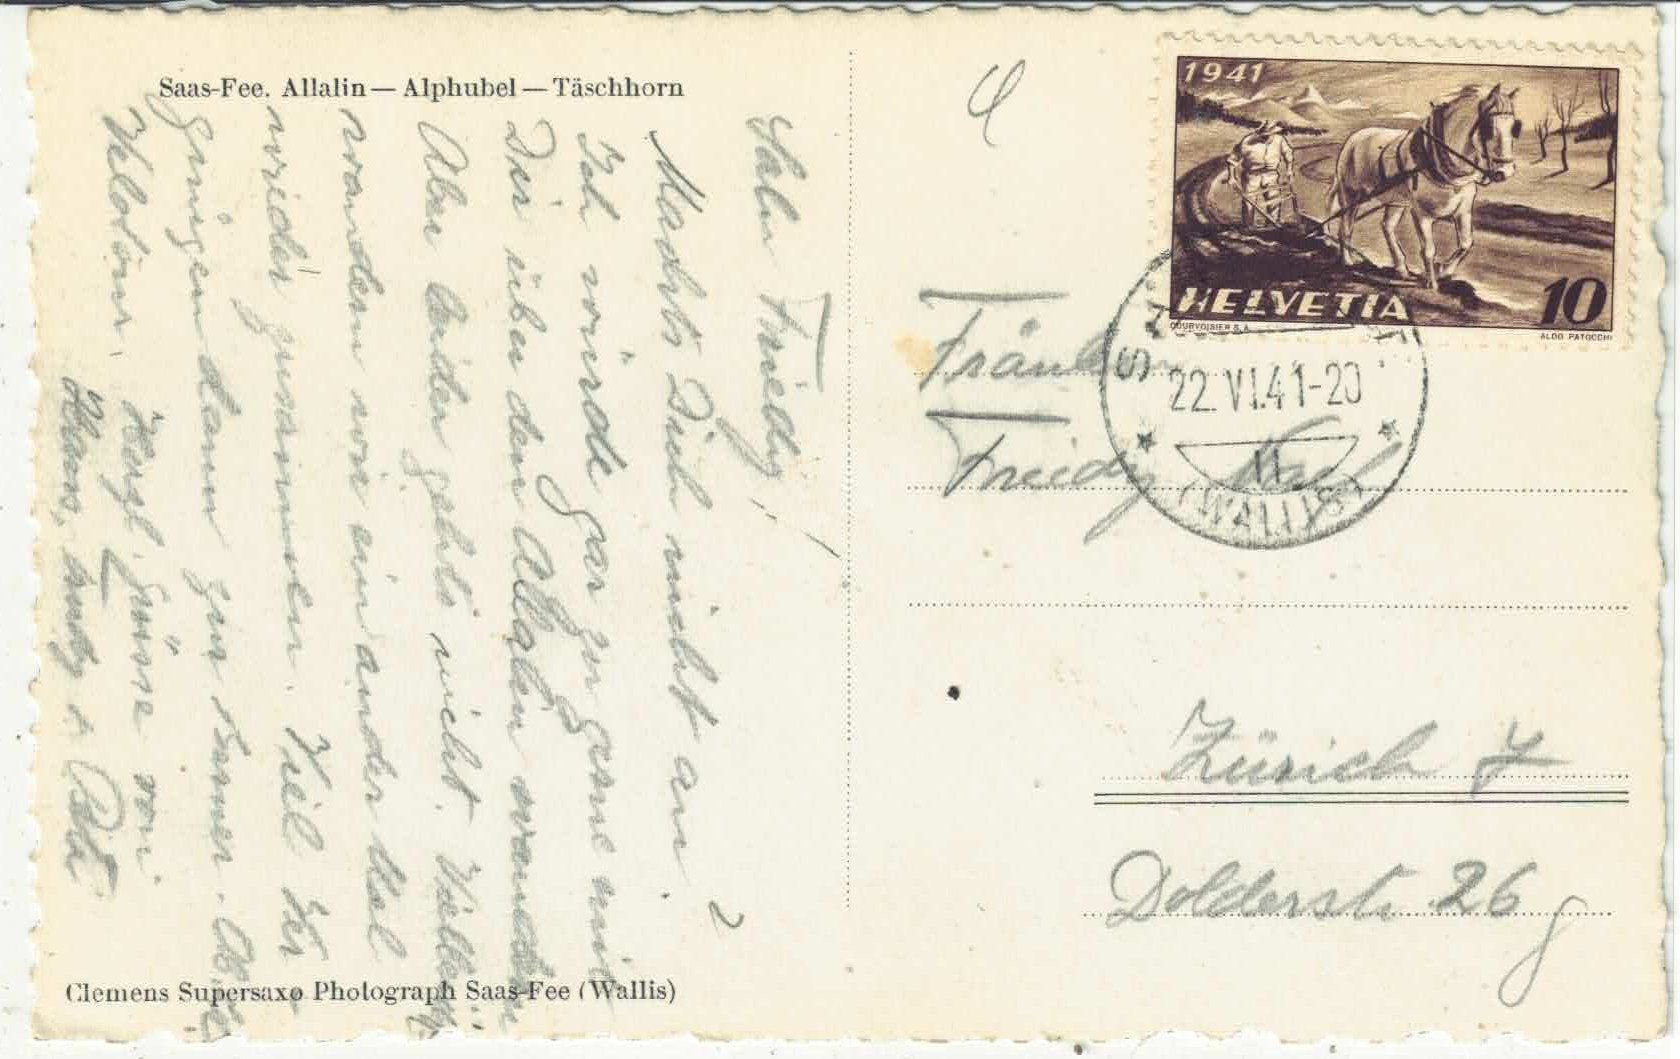 Saas-Fee. Allalin — Alphubel — Täschhorn
Salu Friedy!
Machts Dich nicht an?
Ich würde gar zu gerne mit
Dir über den Allalin wandern
Aber leider gehts nicht.
wandern wir ein ander Mal
wieder zusammen. Viel Ver
gnügen dann zur
Hans,
Herzl. Grüsse von
Clemens Supersaxo Photograph Saas-Fee (Wallis)
1941
HELVETIA
10
COURVOISIER S.A.
ALDO PATOCCHI
22.VI.41-20
(WALLIS)
Friedy
Zürich 7
Dolderstr. 26